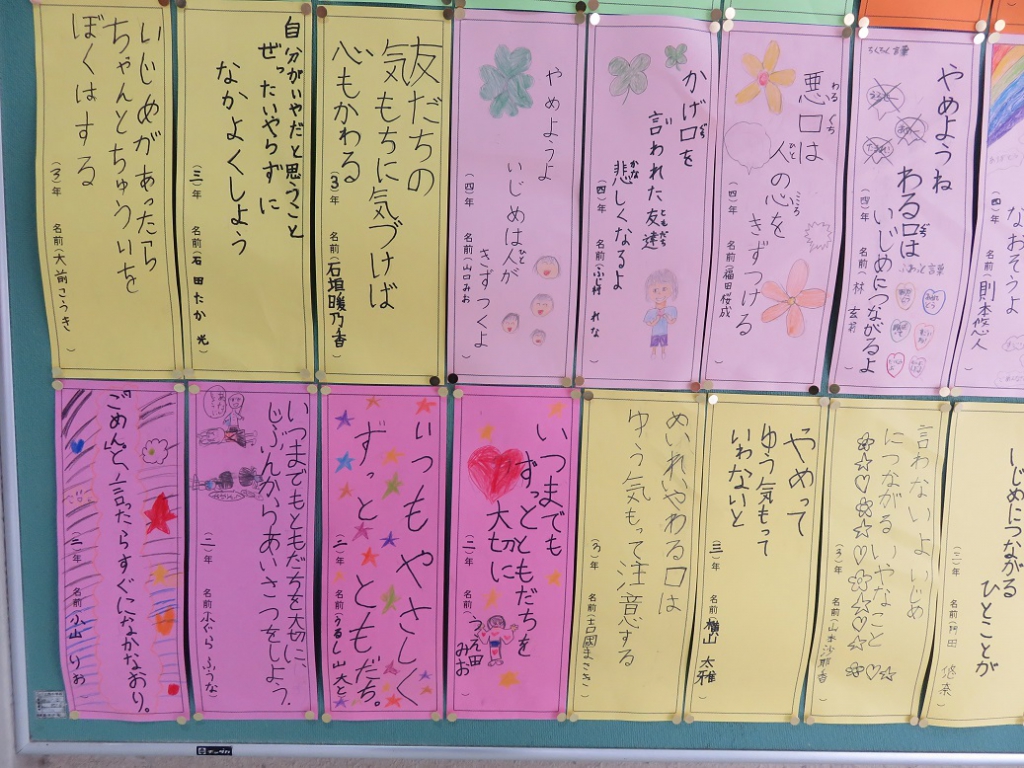 いじめがあったら
ちゃんとちゅういを
ぼくはする
(3)年 名前(大前こうき)
自分がいやだと思うこと
ぜったいやらずに
なかよくしよう
(三)年 名前(石田たか光)
友だちの
気もちに気づけば
心もかわる
(3)年 名前(石垣暖乃香)
やめようよ
いじめは人が
きずつくよ
(四)年 名前(山口みお)
かげ口を
言われた友達
悲しくなるよ
(四)年 名前(ふじ村れな)
悪口は
人の心を
きずつける
(四)年 名前(福田桜成)
ちくちく言葉
やめようね
わる口は
いじめにつながるよ
ふわっと言葉
(四)年 名前(林玄)
なおそうよ
(四)年 名前(則本悠人)
ごめんと、言ったらすぐになかなおり。
(二)年 名前(小山りお)
いつまでもともだちを大切に、
じぶんからあいさつをしよう。
(二)年 名前(小ぐらふうな)
いつもやさしく
ずっとともだち。
(二)年 名前(うるし山大と)
いつまでも
ずっとともだちを
大切に
(二)年 名前(うえ田みお)
めいれいやわる口は
ゆう気もって注意する
(3)年 名前(吉岡まさき)
やめって
ゆう気もって
いわないと
(三)年 名前(横山太雅)
言わないよ いじめ
につながる いやなこと
(3)年 名前(山本沙耶香)
いじめにつながる
ひとことが
(三)年 名前(阿田悠奈)